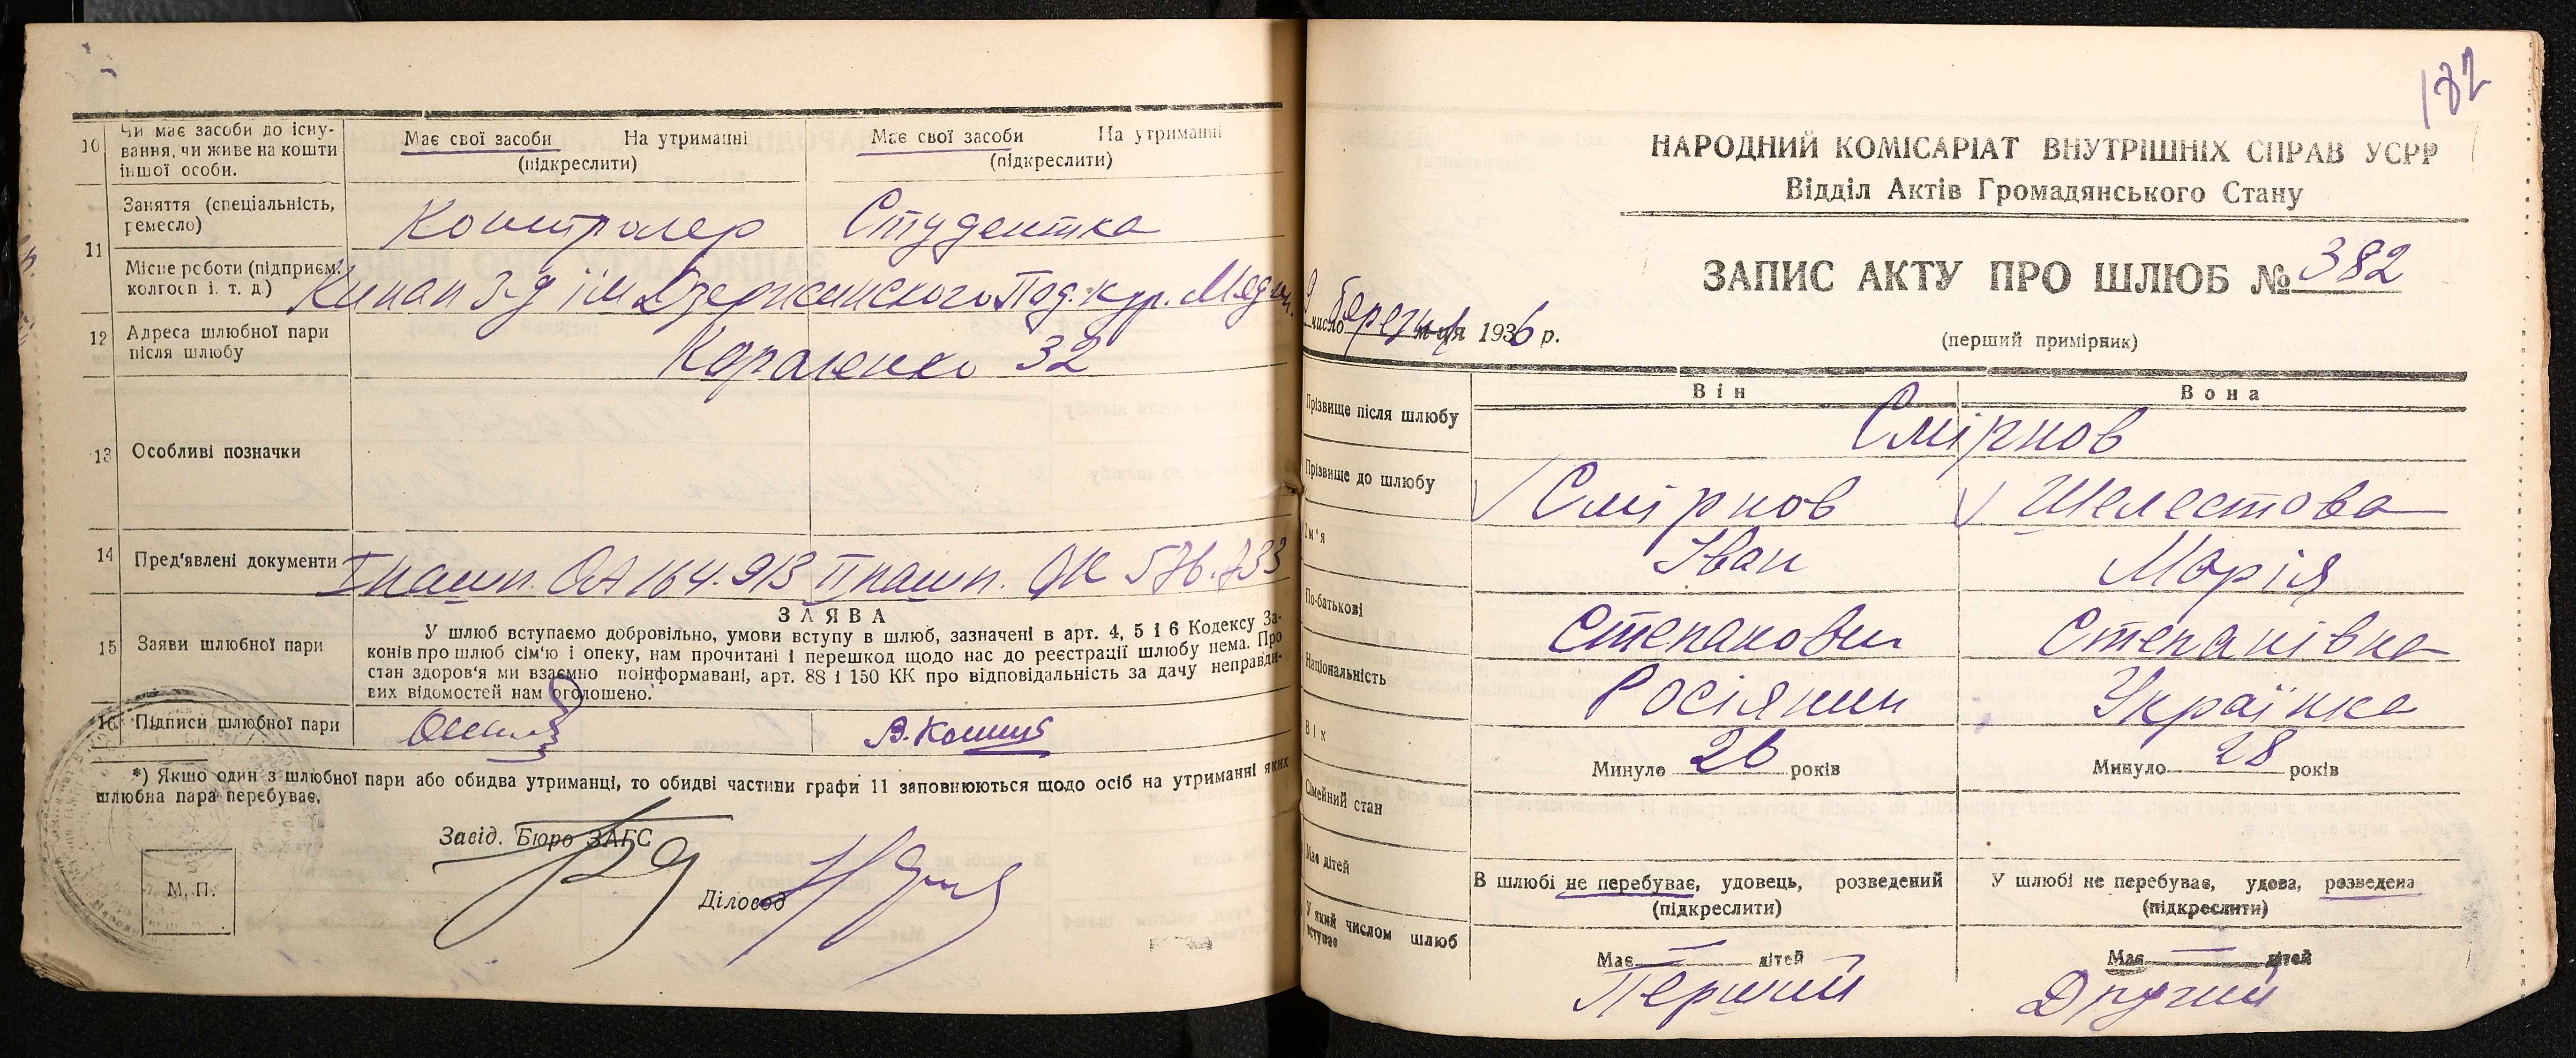 10 Чи має засоби до існу-
вання, чи живе на кошти
іншої особи.
Має свої засоби На утриманні
(підкреслити)
Має свої засоби На утриманні
(підкреслити)
11 Заняття (спеціальність,
ремесло)
Контролер Студентка
Місце роботи (підприєм.
колгосп і. т. д.)
З-д ім Дзержинского Під. кур. Мед
12 Адреса шлюбної пари
після шлюбу
Короленко 32
13 Особливі позначки
14 Пред'явлені документи
I пашп. 164.913 II пашп. 576.733
ЗАЯВА
15 Заяви шлюбної пари
У шлюб вступаємо добровільно, умови вступу в шлюб, зазначені в арт. 4, 5 і 6 Кодексу За-
конів про шлюб сім'ю і опеку, нам прочитані і перешкод щодо нас до реєстрації шлюбу нема. Про
стан здоров'я ми взаємно поінформавані, арт. 88 і 150 КК про відповідальність за дачу неправди-
вих відомостей нам оголошено.
16 Підписи шлюбної пари
*) Якщо один з шлюбної пари або обидва утриманці, то обидві частини графи 11 заповнюються щодо осіб на утриманні яких
шлюбна пара перебуває.
Завід. Бюро ЗАГС
Діловод
М. П.
182
НАРОДНИЙ КОМІСАРІАТ ВНУТРІШНІХ СПРАВ УСРР
Відділ Актів Громадянського Стану
ЗАПИС АКТУ ПРО ШЛЮБ № 382
9 число березня м-ця 1936 р.
(перший примірник)
Він Вона
Прізвище після шлюбу Смірнов
Прізвище до шлюбу Смірнов Шелестова
Ім'я Іван Марія
По-батькові Степанович Степанівна
Національність Росіянин Українка
Вік Минуло 26 років Минуло 28 років
Сімейний стан
В шлюбі не перебуває, удовець, розведений
(підкреслити)
У шлюбі не перебуває, удова, розведена
(підкреслити)
Має дітей
Має — дітей Має — дітей
У який числом шлюб
вступає
Перший Другий